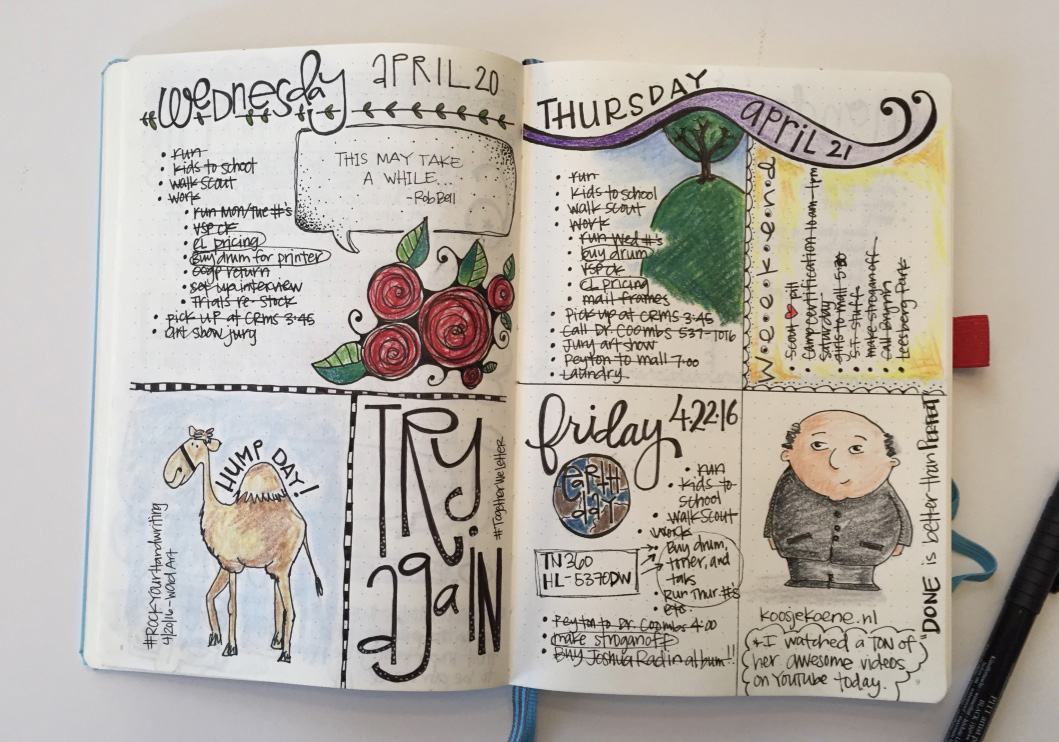 Wednesday APRIL 20
• run
• kids to school
• walk scout
• work
• run Mon/Tue #'s
• VSP CK
• CL pricing
• Buy drum for printer
• return
• set up interview
• Trials re-stock
• pick up at CRMS 3:45
• art show jury
THIS MAY TAKE
A WHILE...
-Rob Bell
HUMP DAY!
#ROCKYOURHANDWRITING
4/20/16 - Word Art
TRY
agaIN
#TogetherWeLetter
THURSDAY april 21
• run
• kids to school
• walk scout
• work
• run Wed #'s
• buy drum
• VSP CK
• CL pricing
• mail frames
• Pick up at CRMS 3:45
• Call Dr. Coombs 537-7016
• Jury art show
• Peyton to mall 7:00
• Laundry
W•e•e•k•e•n•d
• Scout ♥ pill
• Camp certification 10am-1pm
Saturday
• girls to mall 5:30
• S.F. stuff
• make stroganoff
• Call
• Leesberg Park
friday 4.22.16
EARTH
day
• run
• kids to
school
• Walk Scout
• Work
• Buy drum,
toner, and
run Thur. #'s
• etc.
TN360
HL-5370DW
• Peyton to Dr. Coombs 4:00
• make stroganoff
• Buy Joshua Radin album!!
"DONE is better than PERFECT"
koosjekoene.nl
*I watched a TON of
her awesome videos
on YouTube today.